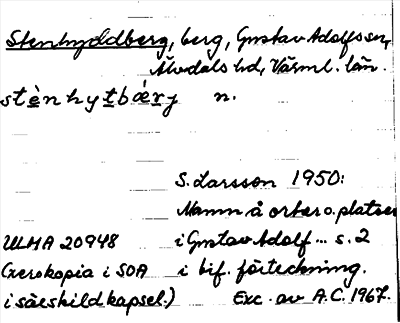 Stenhyddberg, berg, Gustav Adolfs sn,
Älvdals hd, Värml. län.
stènhytbǽrj n.
S. Larsson 1950:
Namn å orter o. platser
ULMA 20948 i Gustav Adolf ... s. 2
(xerokopia i SOA i bif. förteckning.
i särskild kapsel.) Exc. av A.C. 1967.